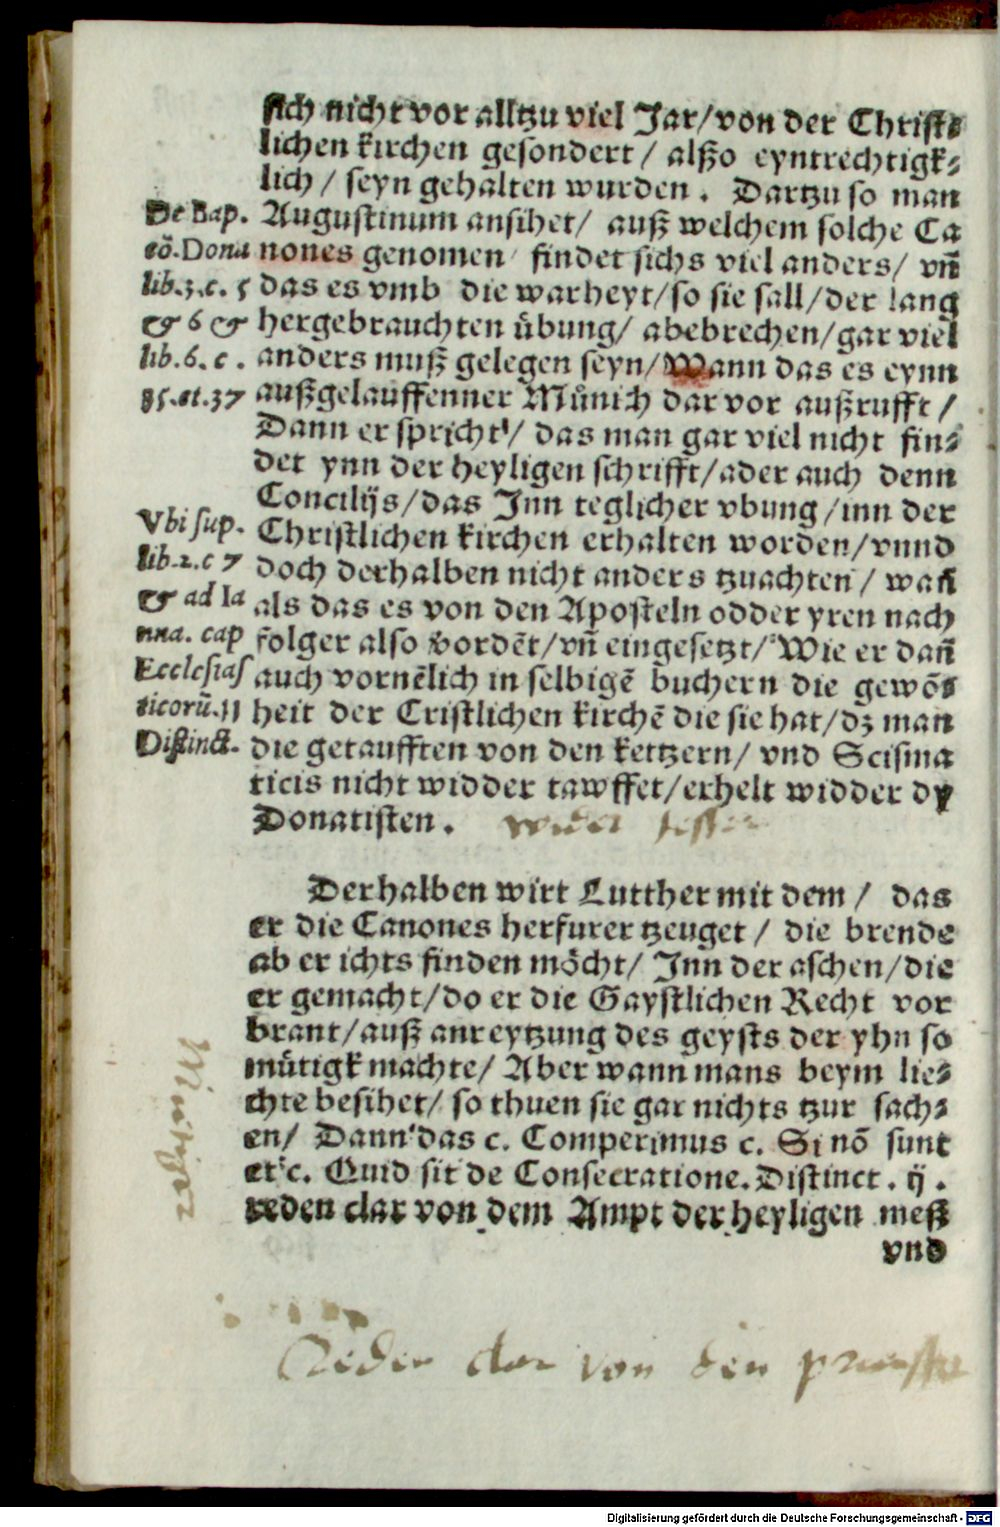 sich nicht vor alltzu viel Jar/von der Christ⸗
lichen kirchen gesondert/ alßo eyntrechtigk⸗
lich/ seyn gehalten wurden. Dartzu so man
Augustinum ansihet/ auß welchem solche Ca
nones genomen/ findet sichs viel anders/ vñ
das es vmb die warheyt/so sie sall/der lang
hergebrauchten übung/ abebrechen/gar viel
anders muß gelegen seyn/Wann das es eynn
außgelauffenner Münich dar vor außrufft/
Dann er spricht/ das man gar viel nicht fin⸗
det ynn der heyligen schrifft/ader auch denn
Concilijs/das Jnn teglicher vbung/inn der
Christlichen kirchen erhalten worden/vnnd
doch derhalben nicht anders tzuachten/ wañ
als das es von den Aposteln odder yren nach
folger also vordẽt/vñ eingesetzt/ Wie er dañ
auch vornẽlich in selbigẽ buchern die gewõ⸗
heit der Cristlichen kirchẽ die sie hat/dz man
die getaufften von den kettzern/ vnd Scisma
ticis nicht widder tawffet/erhelt widder dy
Donatisten.
De Bap.
cõ.Dona
lib.3.c. 5
& 6 &
lib.6. c.
35.et.37
Vbi sup.
lib.2.c 7
& ad Ia
nua. cap
Ecclesias
ticorũ.11
Distinct.
Derhalben wirt Lutther mit dem/ das
er die Canones herfurer tzeuget/ die brende
ab er ichts finden möcht/ Jnn der aschen/die
er gemacht/do er die Gaystlichen Recht vor
brant/auß anreytzung des geysts der yhn so
mütigk machte/ Aber wann mans beym lie⸗
chte besihet/ so thuen sie gar nichts tzur sach⸗
en/ Dann das c. Comperimus c. Si nõ sunt
et c. Quid sit de Consecratione. Distinct. ij.
reden clar von dem Ampt der heyligen meß
vnd
Reden clar von den
Digitalisierung gefördert durch die Deutsche Forschungsgemeinschaft - DFG